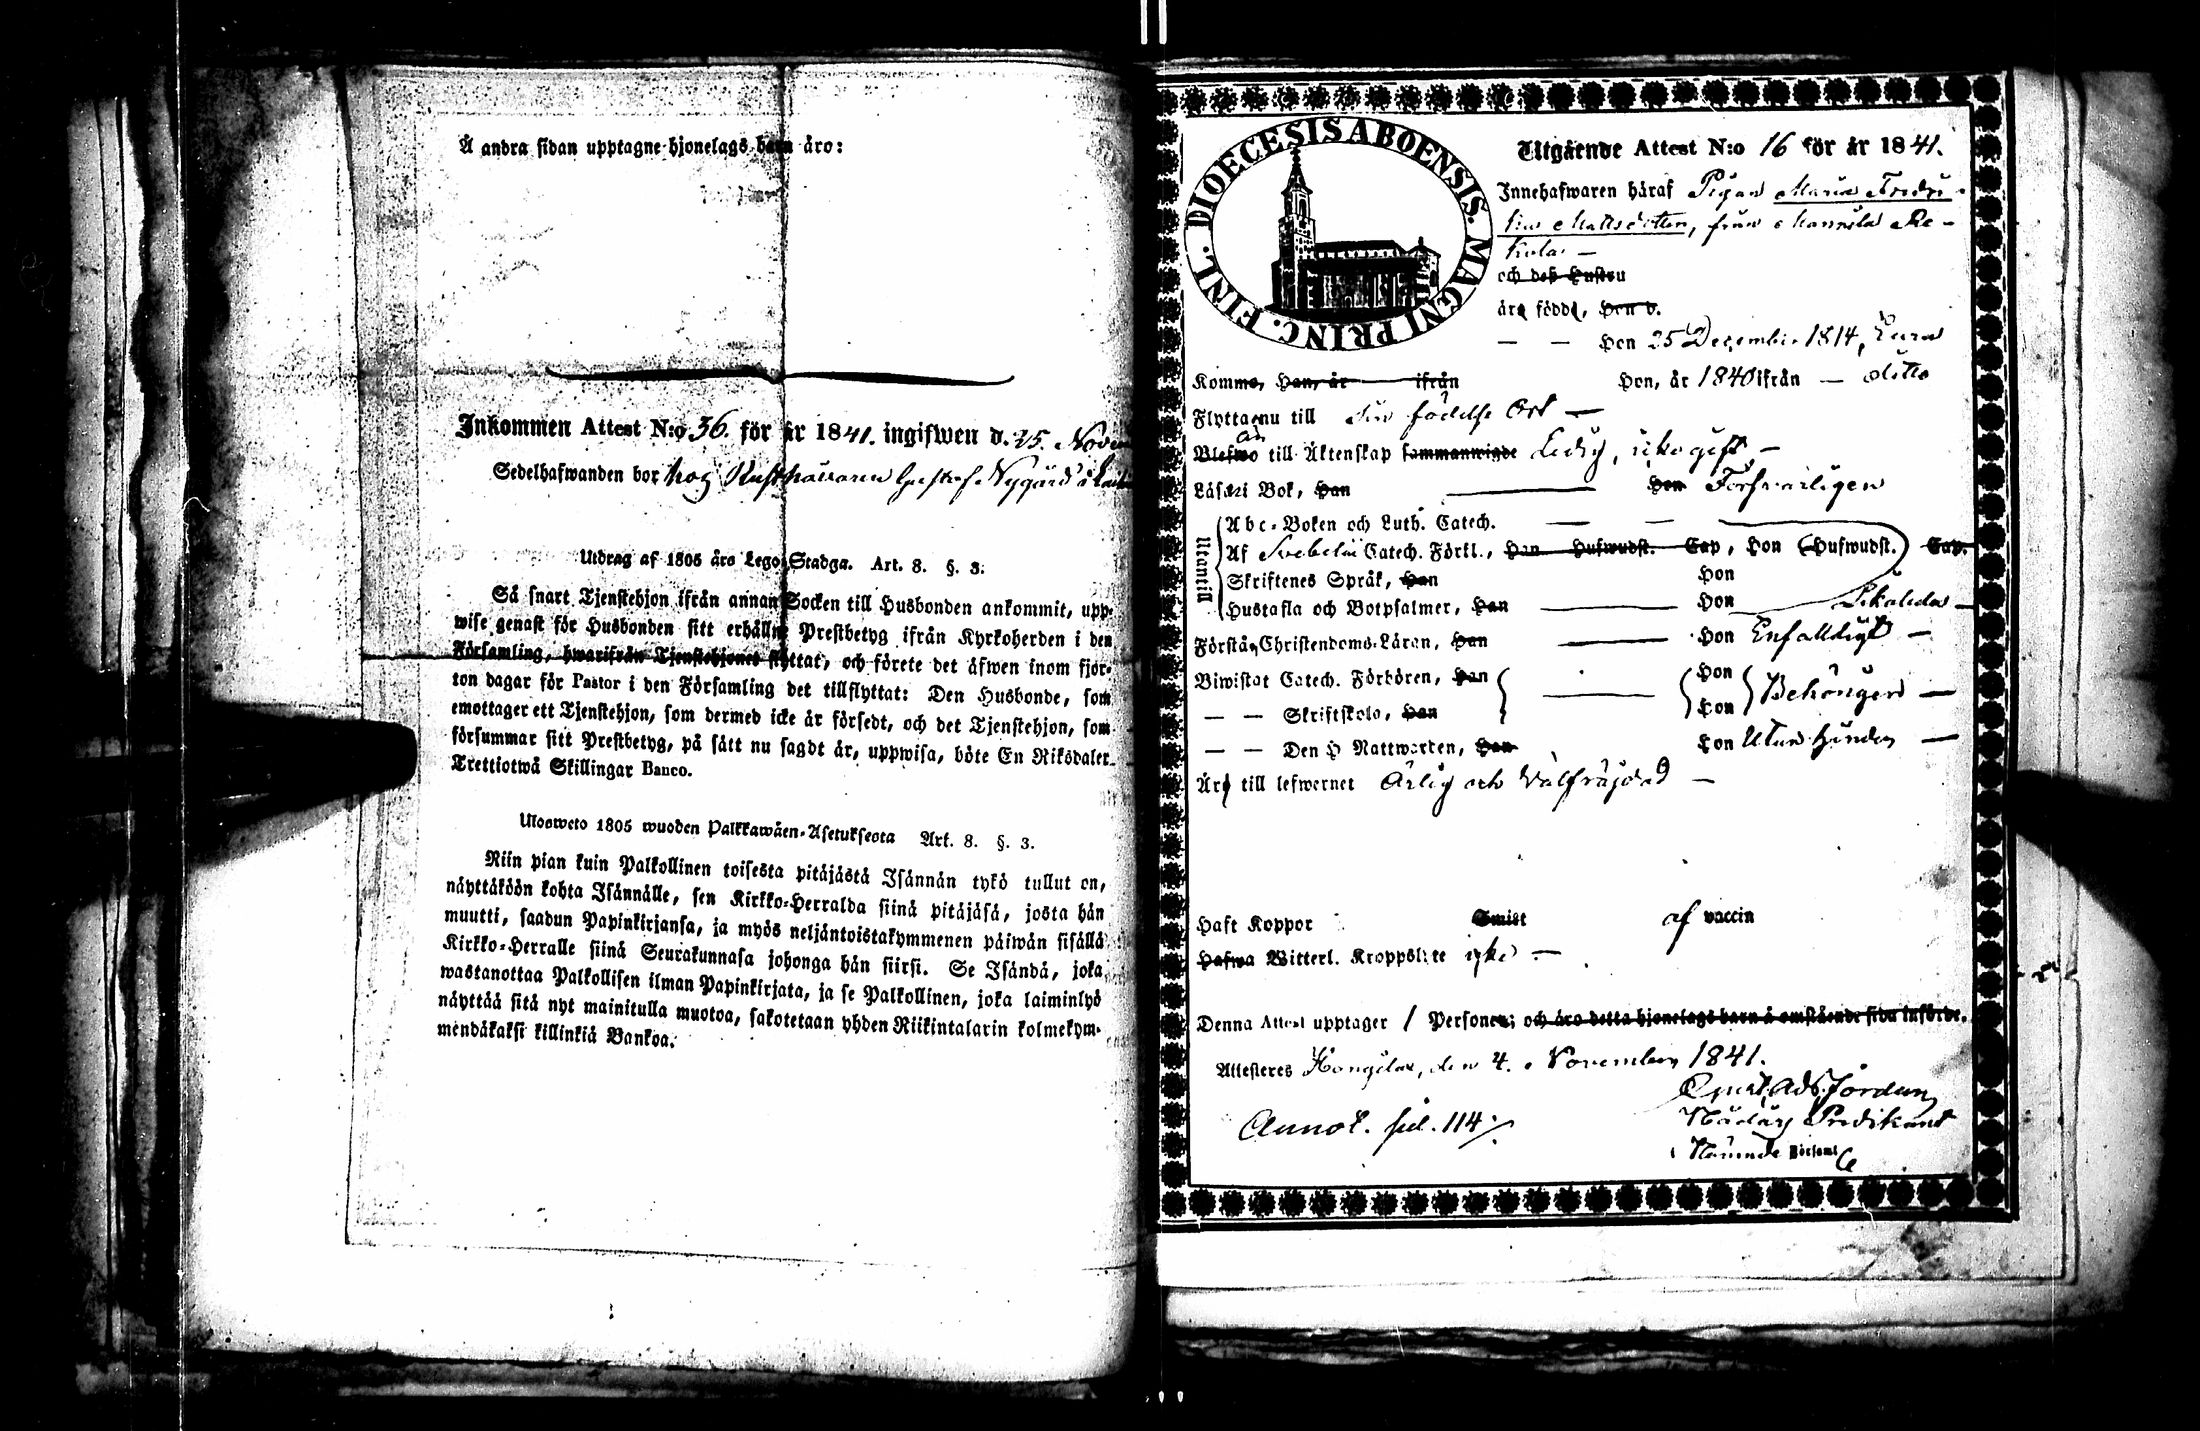 Å andra sidan upptagne hjonelags barn äro:
Inkommen Attest N:o 36. för år 1841. ingifwen d. 25. Novem
Sedelhafwanden bor hos Rusthållaren Gustaf Nygård i
Utdrag af 1805 års Lego Stadga. Art. 8. §. 3.
Så snart Tjenstehjon ifrån annan Socken till Husbonden ankommit, upp-
wise genast för Husbonden sitt erhållne Prestbetyg ifrån Kyrkoherden i den
Församling, hwarifrån Tjenstehjonet flyttat, och förete det äfwen inom fjor-
ton dagar för Pastor i den Församling det tillflyttat: Den Husbonde, som
emottager ett Tjenstehjon, som dermed icke är försedt, och det Tjenstehjon, som
försummar sitt Prestbetyg, på sätt nu sagdt är, uppwisa, böte En Riksdaler
Trettiotwå Skillingar Banco.
Ulosweto 1805 wuoden Palkkawäen-Asetuksesta Art. 8. §. 3.
Niin pian kuin Palkollinen toisesta pitäjästä Isännän tykö tullut on,
näyttäköön kohta Isännälle, sen Kirkko-Herralda siinä pitäjäsä, josta hän
muutti, saadun Papinkirjansa, ja myös neljäntoistakymmenen päiwän sisällä
Kirkko-Herralle siinä Seurakunnasa johonga hän siirsi. Se Isändä, joka
wastanottaa Palkollisen ilman Papinkirjata, ja se Palkollinen, joka laiminlyö
näyttää sitä nyt mainitulla muotoa, sakotetaan yhden Riikintalarin kolmekym-
mendäkaksi killinkiä Bankoa.
DIOECESIS ABOENSIS. MAGNI PRINC. FINL.
Utgående Attest N:o 16 för år 1841.
Innehafwaren häraf Pigan Maria Fredri-
ka Mattsdotter, från Mannila Re-
kola —
och deß Hustru
äro födde, Han d.
— — Hon 25 December 1814, Eura
Komme, Han, år ifrån Hon, år 1840 ifrån — ditto
Flytta nu till Sin födelse Ort —
Blefwo till Äktenskap sammanwigde Ledig, icke gift, —
Läsa i Bok, Han Hon Försvarligen
Utantill
Abc-Boken och Luth. Catech. — —
Af Svebelii Catech. Förkl., Han Hufwudst. Cap, Hon Hufwudst. Cap.
Skriftenes Språk, Han Hon
Hustafla och Botpsalmer, Han Hon Likaledes —
Förstå Christendoms-Läran, Han Hon Enfalldigt —
Biwistat Catech. Förhören, Han Hon Behörigen —
— — Skriftskola, Han Hon
— — Den H Nattwarden, Han Hon Utan hinder —
Äro till lefwernet Ärlig och Välfräjdad —
Haft Koppor Smitt af vaccin
Hafwa Witterl. Kroppslyte icke —
Denna Attest upptager 1 Personer; och äro detta hjonelags barn å omstående sida införde.
Attesteres Hongilax, den 4. November 1841.
Nådårs Predikant
Annot. fol. 114